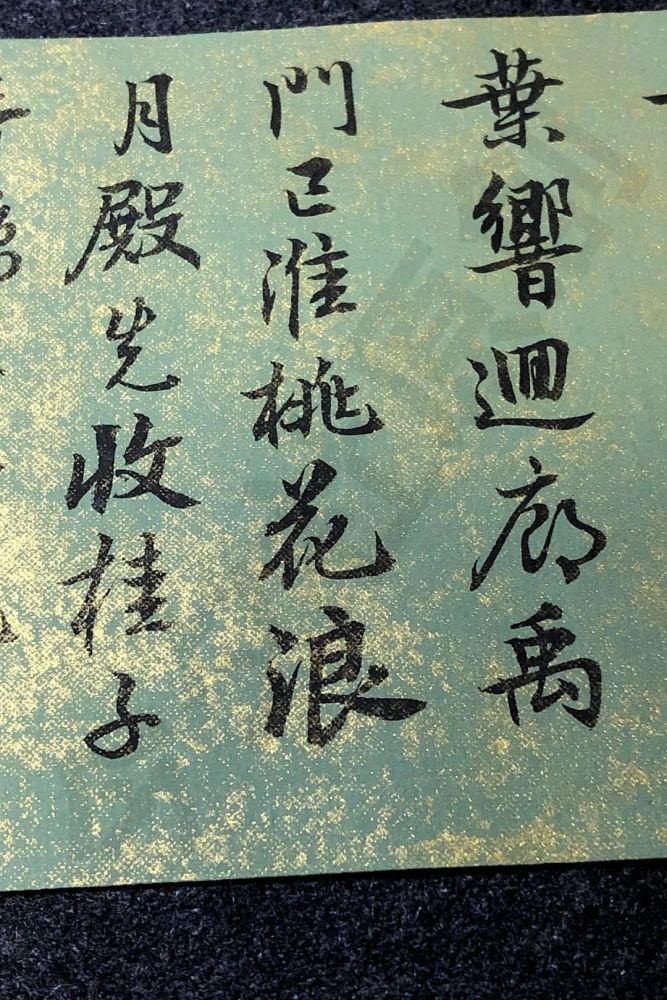 葉響迴廊禹
門已准桃花浪
月殿先收桂子